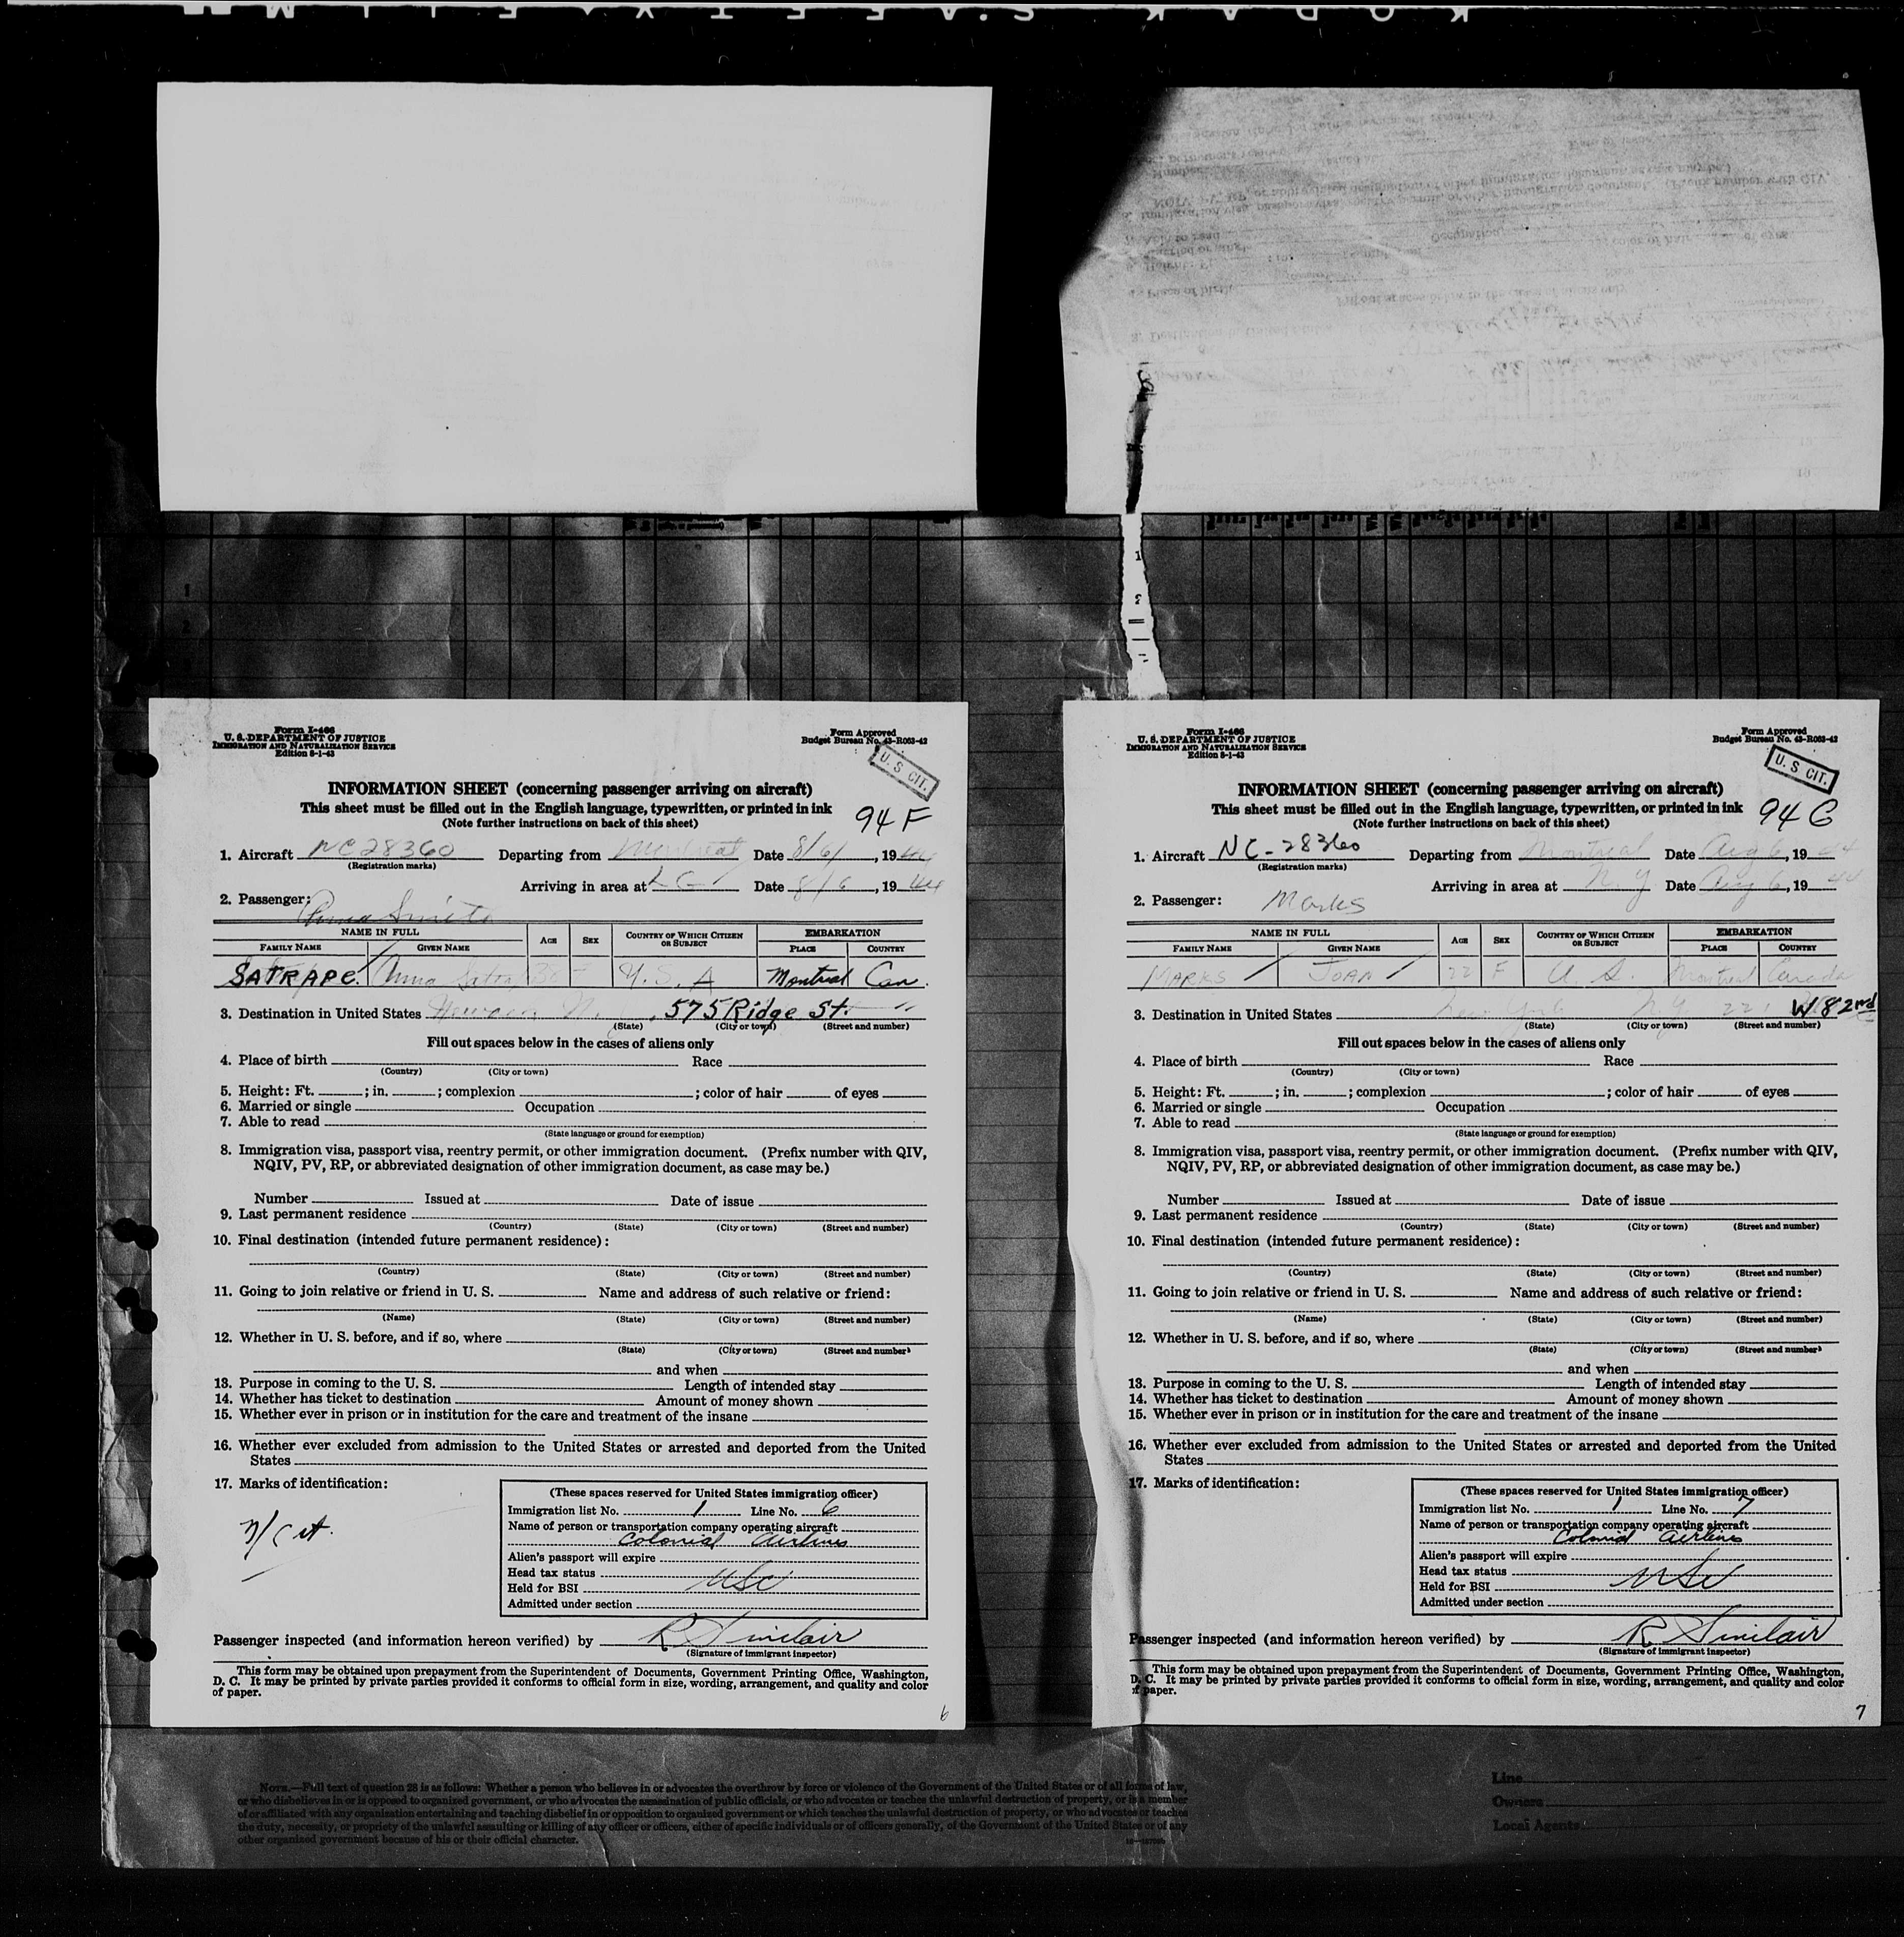 KODAK SAFETY FILM
Form I-466
U. S. DEPARTMENT OF JUSTICE
IMMIGRATION AND NATURALIZATION SERVICE
Edition 8-1-43
Form Approved
Budget Bureau No. 43-R063-42
U. S CIT.
INFORMATION SHEET (concerning passenger arriving on aircraft)
This sheet must be filled out in the English language, typewritten, or printed in ink
(Note further instructions on back of this sheet)
94 F
1. Aircraft NC28360 Departing from Montreal Date 8/6/, 19 44
(Registration marks)
Arriving in area at LG Date 8/6, 19 44
2. Passenger: Anna Smith
NAME IN FULL AGE SEX COUNTRY OF WHICH CITIZEN OR SUBJECT EMBARKATION
FAMILY NAME GIVEN NAME PLACE COUNTRY
SATRAPE Anna U. S. A Montreal Can.
3. Destination in United States 575 Ridge St.
(State) (City or town) (Street and number)
Fill out spaces below in the cases of aliens only
4. Place of birth Race
(Country) (City or town)
5. Height: Ft. ; in. ; complexion ; color of hair of eyes
6. Married or single Occupation
7. Able to read
(State language or ground for exemption)
8. Immigration visa, passport visa, reentry permit, or other immigration document. (Prefix number with QIV,
NQIV, PV, RP, or abbreviated designation of other immigration document, as case may be.)
Number Issued at Date of issue
9. Last permanent residence
(Country) (State) (City or town) (Street and number)
10. Final destination (intended future permanent residence):
(Country) (State) (City or town) (Street and number)
11. Going to join relative or friend in U. S. Name and address of such relative or friend:
(Name) (State) (City or town) (Street and number)
12. Whether in U. S. before, and if so, where
(State) (City or town) (Street and number)
and when
13. Purpose in coming to the U. S. Length of intended stay
14. Whether has ticket to destination Amount of money shown
15. Whether ever in prison or in institution for the care and treatment of the insane
16. Whether ever excluded from admission to the United States or arrested and deported from the United
States
17. Marks of identification:
(These spaces reserved for United States immigration officer)
Immigration list No. 1 Line No. 6
Name of person or transportation company operating aircraft
Colonial Airlines
Alien's passport will expire
Head tax status
USC
Held for BSI
Admitted under section
Passenger inspected (and information hereon verified) by R Sinclair
(Signature of immigrant inspector)
This form may be obtained upon prepayment from the Superintendent of Documents, Government Printing Office, Washington,
D. C. It may be printed by private parties provided it conforms to official form in size, wording, arrangement, and quality and color
of paper.
6
Form I-466
U. S. DEPARTMENT OF JUSTICE
IMMIGRATION AND NATURALIZATION SERVICE
Edition 8-1-43
Form Approved
Budget Bureau No. 43-R063-42
U. S CIT.
INFORMATION SHEET (concerning passenger arriving on aircraft)
This sheet must be filled out in the English language, typewritten, or printed in ink
(Note further instructions on back of this sheet)
94 G
1. Aircraft NC-28360 Departing from Montreal Date Aug 6, 19 44
(Registration marks)
Arriving in area at N.Y Date Aug 6, 19 44
2. Passenger: Marks
NAME IN FULL AGE SEX COUNTRY OF WHICH CITIZEN OR SUBJECT EMBARKATION
FAMILY NAME GIVEN NAME PLACE COUNTRY
MARKS JOAN 22 F U. S. Montreal Canada
3. Destination in United States New York N.Y. 221 W 82nd
(State) (City or town) (Street and number)
Fill out spaces below in the cases of aliens only
4. Place of birth Race
(Country) (City or town)
5. Height: Ft. ; in. ; complexion ; color of hair of eyes
6. Married or single Occupation
7. Able to read
(State language or ground for exemption)
8. Immigration visa, passport visa, reentry permit, or other immigration document. (Prefix number with QIV,
NQIV, PV, RP, or abbreviated designation of other immigration document, as case may be.)
Number Issued at Date of issue
9. Last permanent residence
(Country) (State) (City or town) (Street and number)
10. Final destination (intended future permanent residence):
(Country) (State) (City or town) (Street and number)
11. Going to join relative or friend in U. S. Name and address of such relative or friend:
(Name) (State) (City or town) (Street and number)
12. Whether in U. S. before, and if so, where
(State) (City or town) (Street and number)
and when
13. Purpose in coming to the U. S. Length of intended stay
14. Whether has ticket to destination Amount of money shown
15. Whether ever in prison or in institution for the care and treatment of the insane
16. Whether ever excluded from admission to the United States or arrested and deported from the United
States
17. Marks of identification:
(These spaces reserved for United States immigration officer)
Immigration list No. 1 Line No. 7
Name of person or transportation company operating aircraft
Colonial Airlines
Alien's passport will expire
Head tax status
USC
Held for BSI
Admitted under section
Passenger inspected (and information hereon verified) by R Sinclair
(Signature of immigrant inspector)
This form may be obtained upon prepayment from the Superintendent of Documents, Government Printing Office, Washington,
D. C. It may be printed by private parties provided it conforms to official form in size, wording, arrangement, and quality and color
of paper.
7
NOTE.—Full text of question 28 is as follows: Whether a person who believes in or advocates the overthrow by force or violence of the Government of the United States or of all forms of law,
or who disbelieves in or is opposed to organized government, or who advocates the assassination of public officials, or who advocates or teaches the unlawful destruction of property, or is a member
of or affiliated with any organization entertaining and teaching disbelief in or opposition to organized government or which teaches the unlawful destruction of property, or who advocates or teaches
the duty, necessity, or propriety of the unlawful assaulting or killing of any officer or officers, either of specific individuals or of officers generally, of the Government of the United States or of any
other organized government because of his or their official character.
Line
Owners
Local Agents